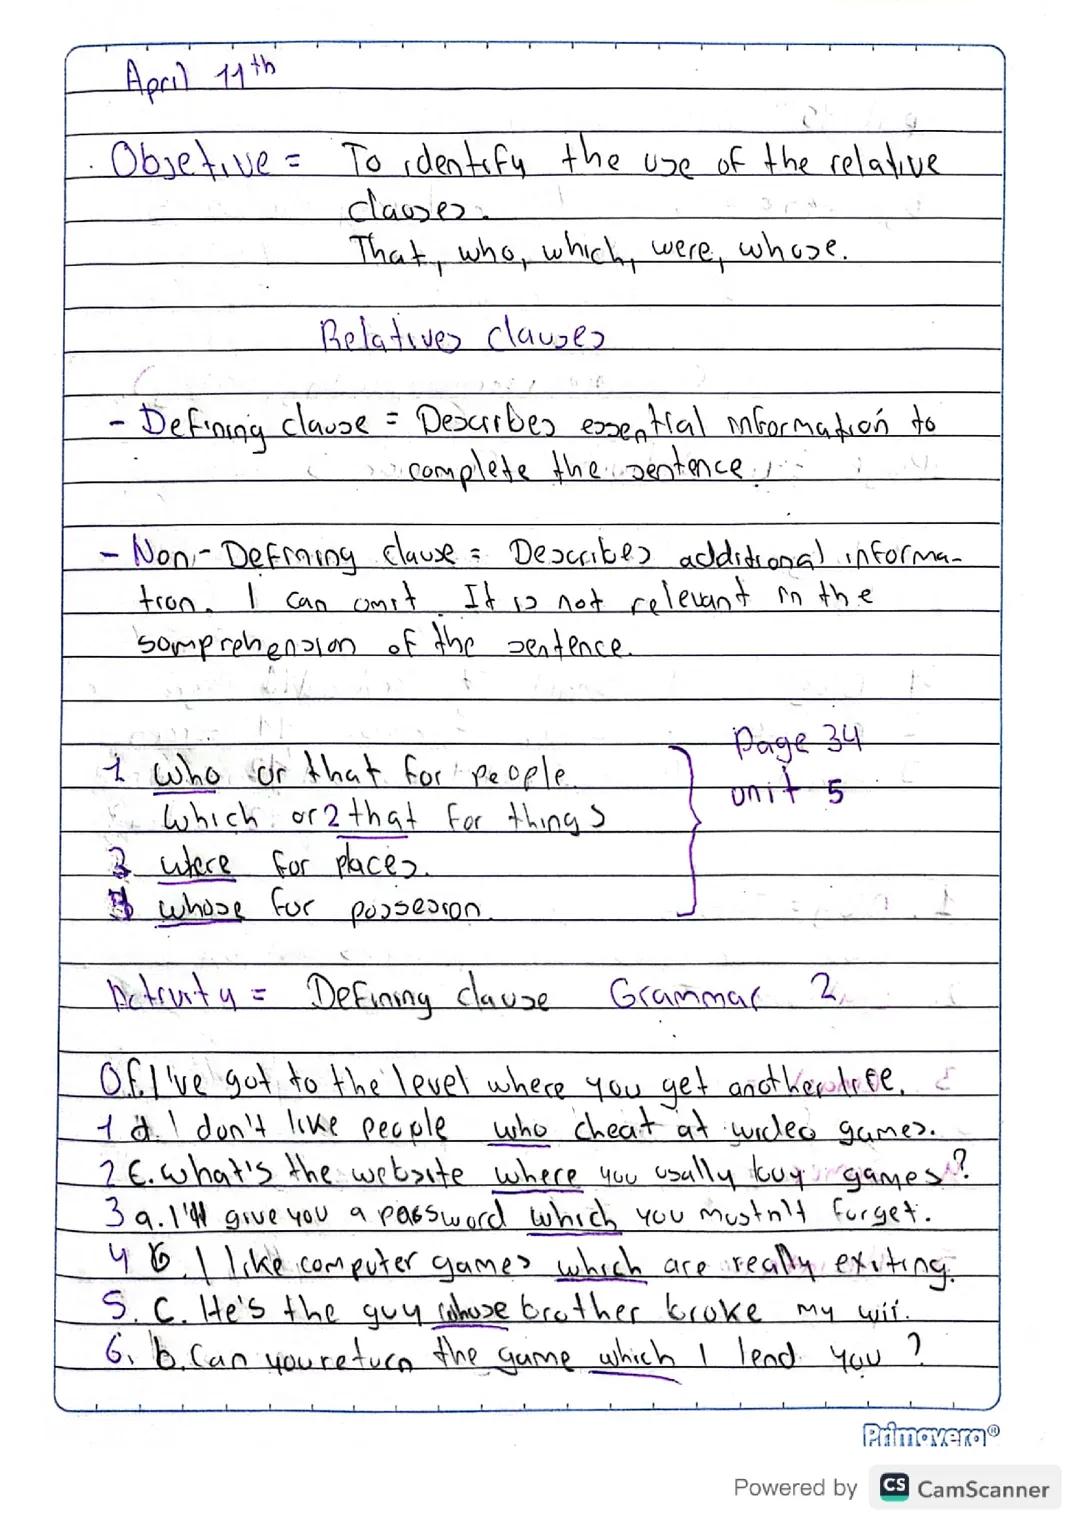 April 11th
. Objetive = To identify the use of the relative
clauses.
That, who, which, were, whose.
Relatives clauses
- Defining clause = Describes essential informatión to
complete the sentence.
- Non-Defining clause = Describes additional informa-
tion. I can omit. It is not relevant in the
somprehension of the sentence.
1 who or that for people.
which or 2 that for things
3 where for places.
4 whose for possesion.
Page 34
unit 5
Activity = Defining clause Grammar 2.
0.f. I've got to the level where you get another life.
1 d. I don't like people who cheat at video games.
2 E. What's the website where you usally buy games?
3 a. I'll give you a password which you mustn't forget.
4 G. I like computer games which are really exiting.
5. C. He's the guy whose brother broke my wii.
6. b. Can you return the game which I lend you?
Primavera®
Powered by CS CamScanner